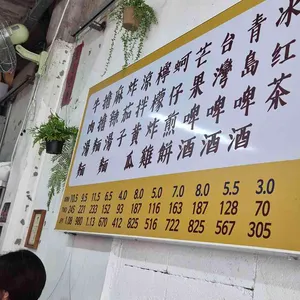 冰紅茶
青島啤酒
台灣啤酒
芒果啤酒
蚵仔煎餅
檸檬炸雞
涼拌黃瓜
炸茄子
麻辣湯麵
擔擔麵
牛肉湯麵
10.5 9.5 11.5 6.5 4.0 8.0 5.0 7.0 8.0 5.5 3.0
245 221 233 152 93 187 116 163 187 128 70
1.08 980 1.13 670 412 825 516 722 825 567 305